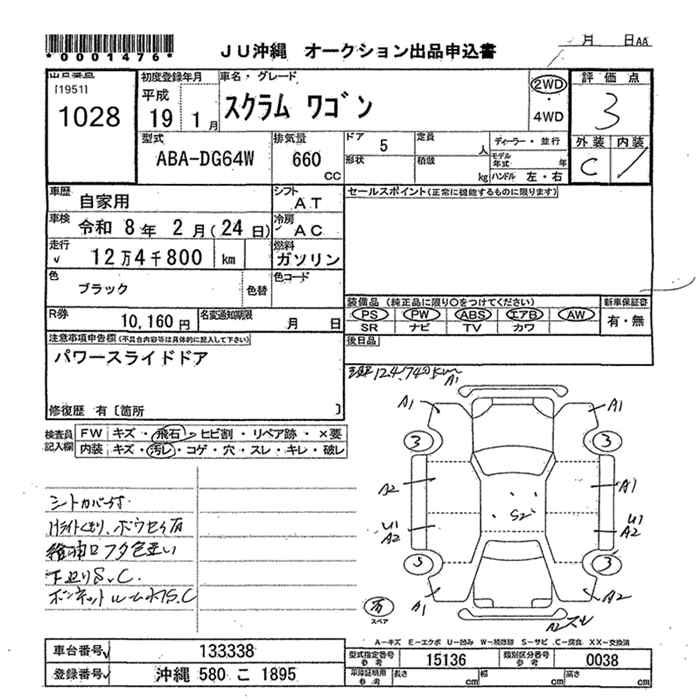 *0001476*
JU沖縄 オークション出品申込書
月 日AA
出品番号 初度登録年月 車名・グレード 評価点
[1951] 平成 スクラム ワゴン 2WD 3
1028 19 1月 ・ 4WD
型式 排気量 ドア 5 定員 人 ディーラー・並行 外装 内装
ABA-DG64W 660 CC 形状 積載 kg モデル年式 年 C
ハンドル 左・右
車歴 自家用 シフト AT セールスポイント(正常に機能するものに限ります)
車検 令和 8年 2月(24日) 冷房 AC
走行 12万4千800 km 燃料 ガソリン
色 ブラック 色替 色コード
装備品(純正品に限り○をつけてください) 新車保証書
R券 10,160円 名変通知期限 月 日 PS PW ABS エアB AW 有・無
SR ナビ TV カワ
注意事項申告欄(不具合内容等は具体的に記入して下さい) 後日品
パワースライドドア
修復歴 有〔箇所 〕
12.4.740km
検査員記入欄 FW キズ・飛石・ヒビ割・リペア跡・×要
内装 キズ・汚レ・コゲ・穴・スレ・キレ・破レ
A1
A1 A1
3 3
A2 A1
S2
U1 U1
A2 A2
3
A1 A2
スペア
下廻りS.C.
A-キズ E-エクボ U-凹み W-補修跡 S-サビ C-腐食 XX-交換済
車台番号 133338 型式指定番号 参考 15136 類別区分番号 参考 0038
登録番号 沖縄 580 こ 1895 車庫証明用 参考 長さ cm 幅 cm 高さ cm